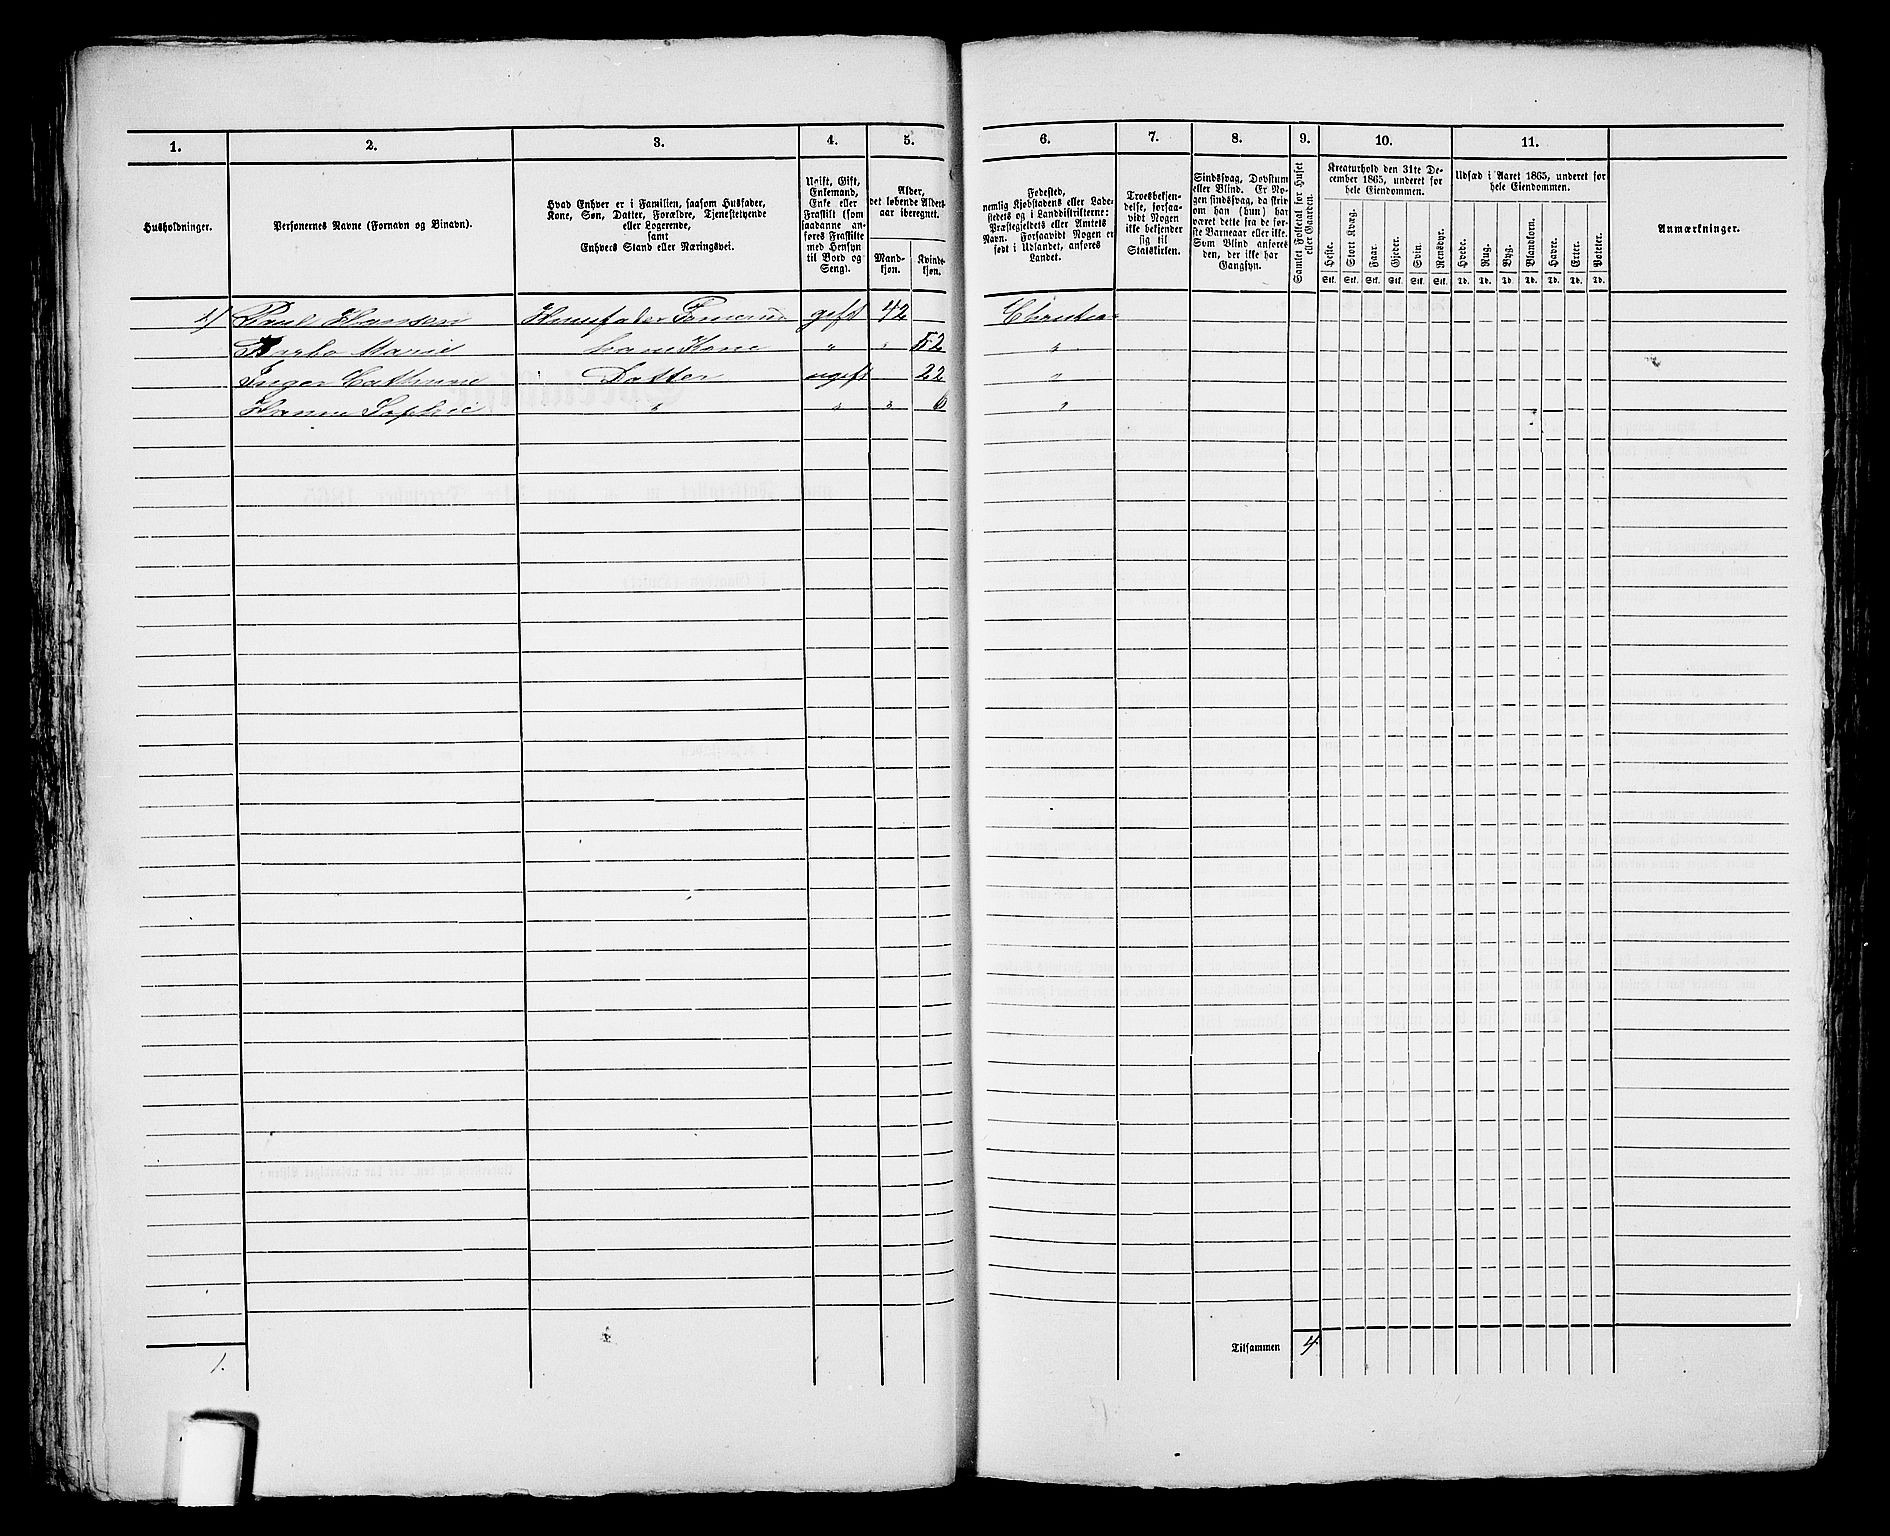 1.
2.
3.
4.
5.
6.
7.
8.
9.
10.
11.
Husholdninger.
Personernes Navne (Fornavn og Binavn).
Hvad Enhver er i Familien, saasom Husfader,
Kone, Søn, Datter, Forældre, Tjenestetyende
eller Logerende,
samt
Enhvers Stand eller Næringsvei.
Ugift, Gift,
Enkemand,
Enke eller
Fraskilt (som
saadanne an-
føres Fraskilte
med Hensyn
til Bord og
Seng).
Alder,
det løbende Alders-
aar iberegnet.
Mand-
kjøn.
Kvinde-
kjøn.
Fødested,
nemlig Kjøbstadens eller Lade-
stedets og i Landdistrikterne:
Præstegjeldets eller Amtets
Navn. Forsaavidt Nogen er
født i Udlandet, anføres
Landet.
Troesbekjen-
delse, forsaa-
vidt Nogen
ikke bekjender
sig til
Statskirken.
Sindssvag, Døvstum
eller Blind. Er No-
gen sindssvag, da skriv
om han (hun) har
været dette fra de før-
ste Barneaar eller ikke.
Som Blind anføres
den, der ikke har
Gangsyn.
Samlet Folketal for Huset
eller Gaarden.
Kreaturhold den 31te De-
cember 1865, underet for
hele Eiendommen.
Heste. Stort Kvæg. Faar. Gjeder. Svin. Rensdyr.
Stk. Stk. Stk. Stk. Stk. Stk.
Udsæd i Aaret 1865, underet for
hele Eiendommen.
Hvede. Rug. Byg. Blandkorn. Havre. Erter. Poteter.
Td. Td. Td. Td. Td. Td. Td.
Anmærkninger.
Poul Hansen Huusfader gift 42
Marie hans Kone " " 52 "
Inger Cathrine Datter ugift 22 "
Sophie " " " 6 "
1.
Tilsammen 4